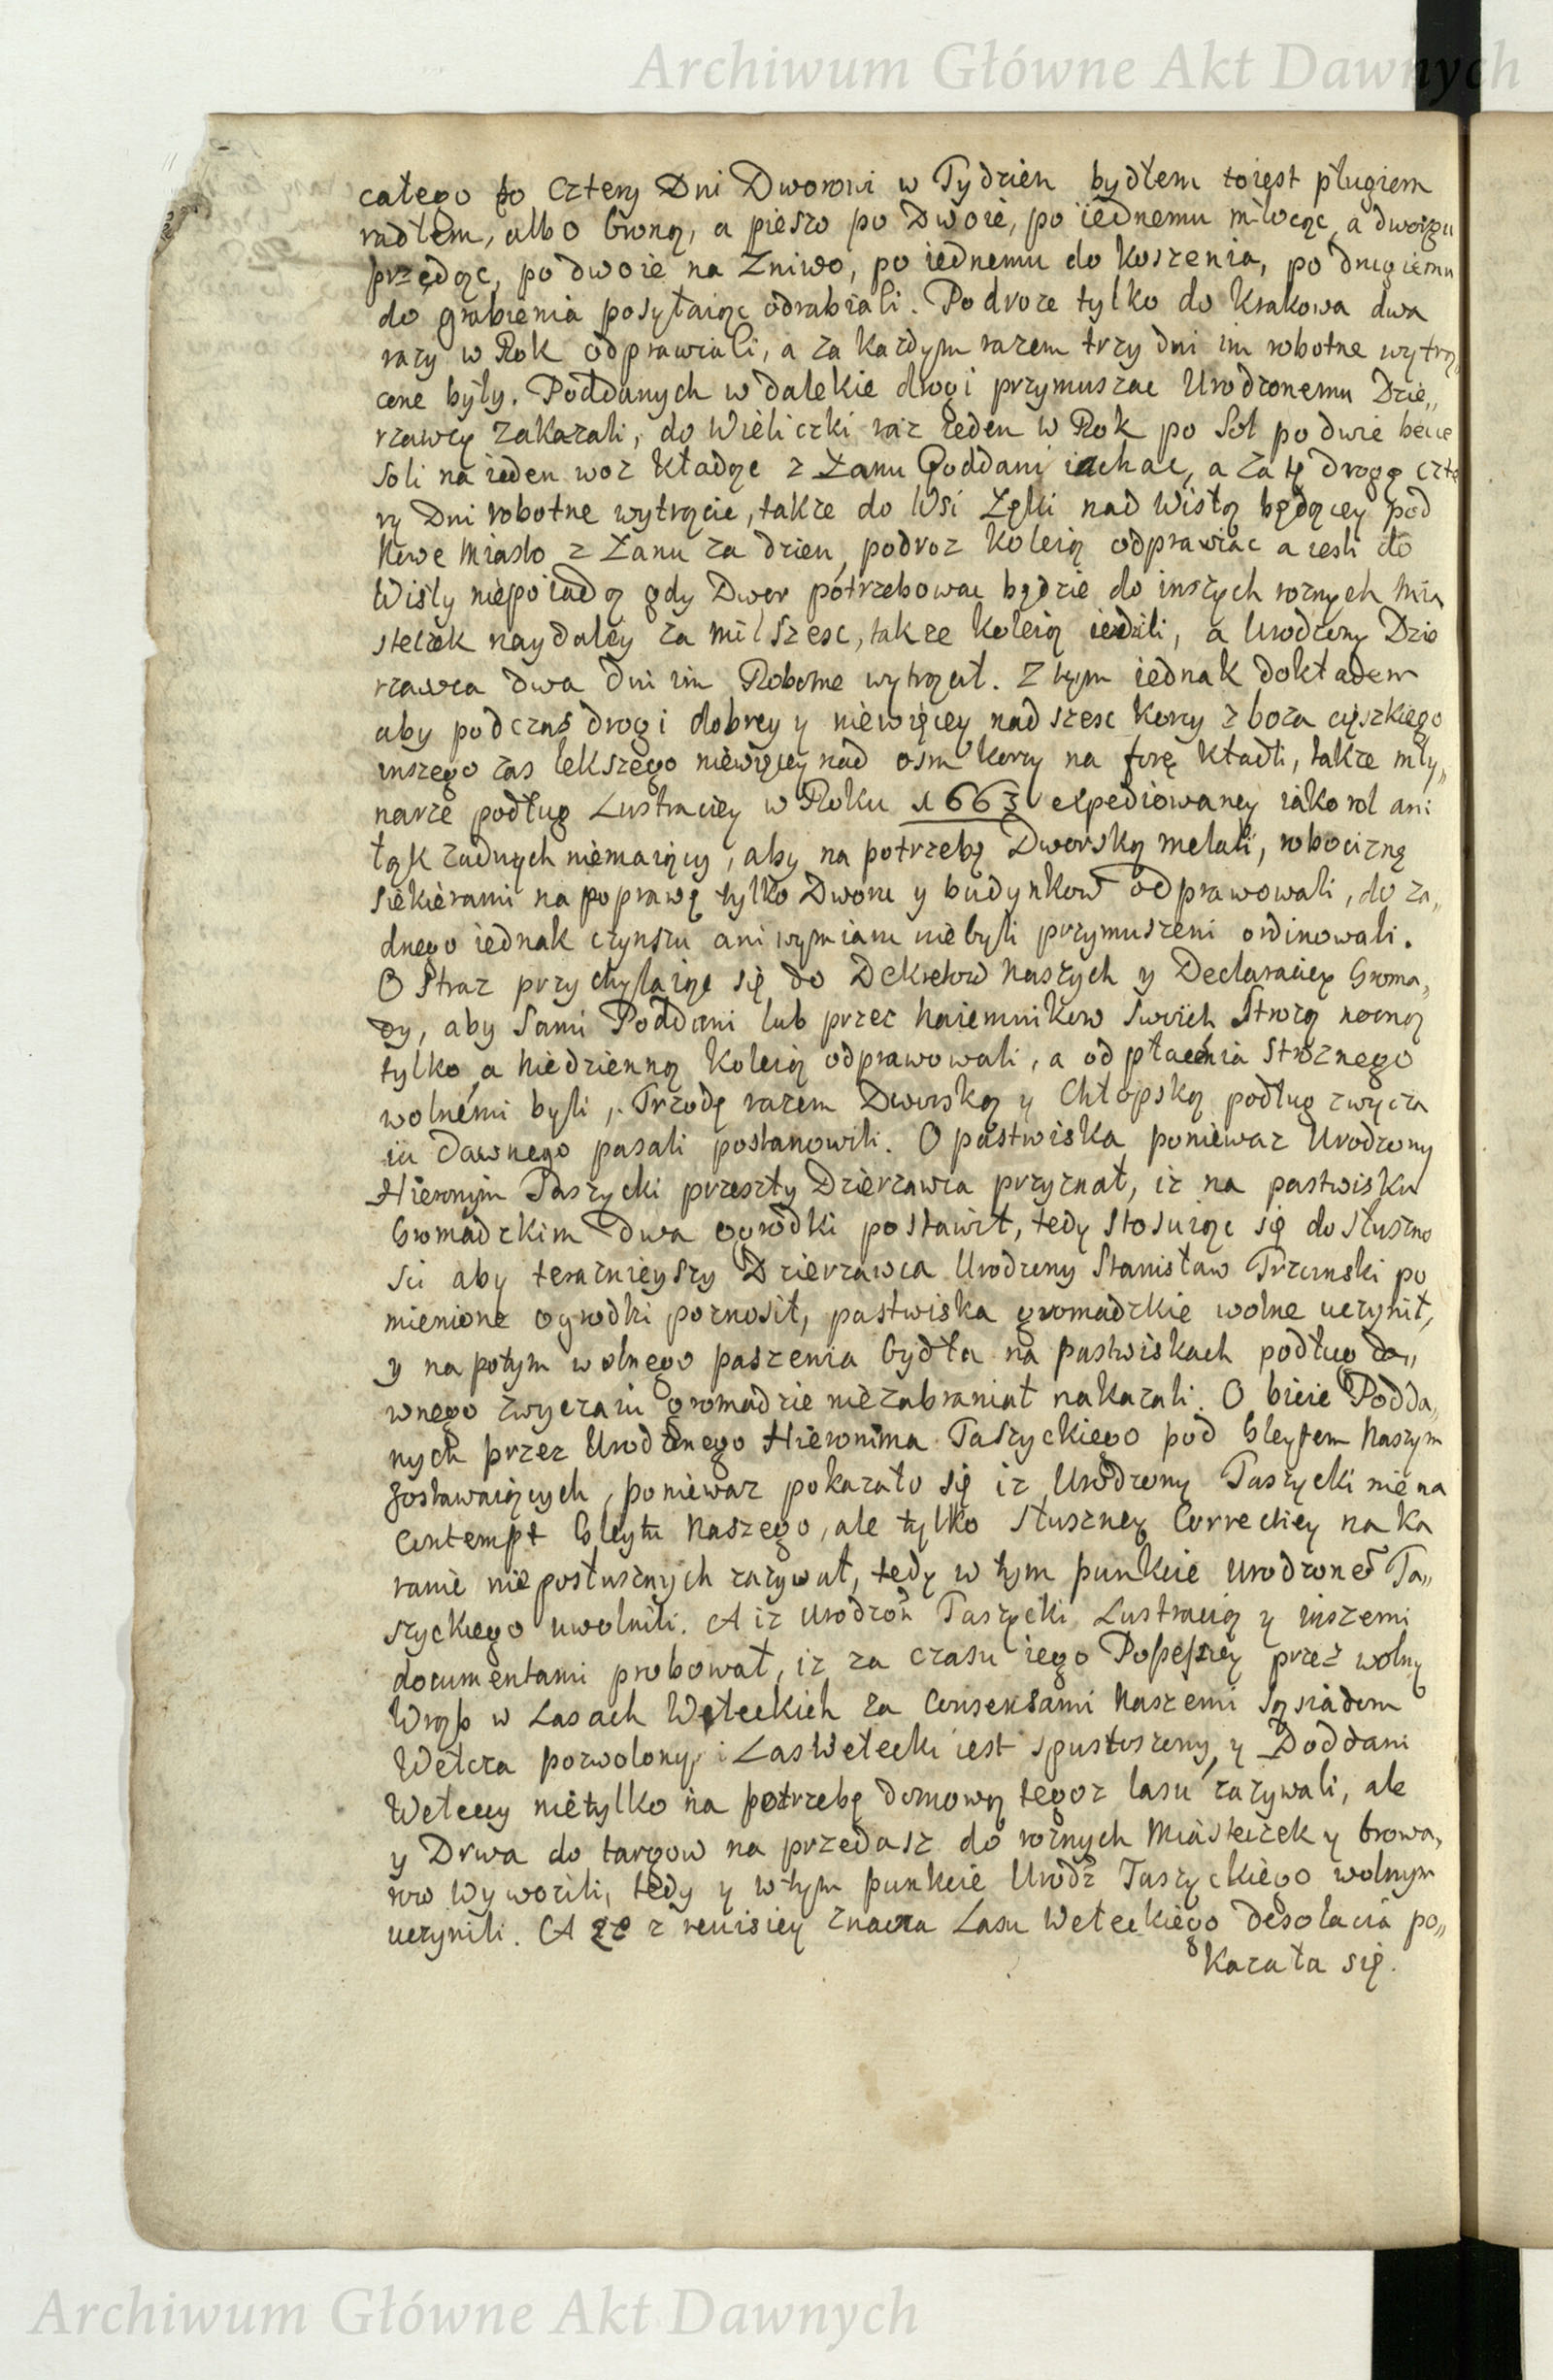 Archiwum Główne Akt Dawnych
całego po cztery Dni Dworowi w Tydzien bydłem toiest pługiem
radłem, albo broną, a pieszo po Dwoie, po iednemu młocąc, a dworgu
przędąc, po dwoie na Zniwo, po iednemu do koszenia, po drugiemu
do grabienia posyłaiąc odrabiali. Podroze tylko do Krakowa dwa
razy w Rok odprawiali, a za kazdym razem trzy dni im robotne wytrą
cone były. Poddanych w dalekie drogi przymuszac Urodzonemu Dzie„
rzawcy zakazali, do Wieliczki raz ieden w Rok po Sol po dwie becce
Soli na ieden woz kładąc z Łanu Poddani iachac, a za tę drogę czte
ry Dni robotne wytrącic, takze do Wsi Łęki nad Wisłą będącey pod
Nowe Miasto z Łanu za dzien, podroz koleią odprawiac a iesli do
Wisły niepoiadą gdy Dwor potrzebowac będzie do inszych roznych Mia
steczek naydaley za mil szesc, takze koleią iezdzili, a Urodzony Dzie
rzawca dwa dni im Robotne wytrącał. Z tym iednak dokładem
aby podczas drogi dobrey y niewięcey nad szesc korcy zboza cięszkiego
inszego zas lekszego niewięcey nad osm korcy na forę kładli, takze mły„
narze podług Lustraciey w Roku 1663 expediowaney iako rol ani
łąk zadnych niemaiący, aby na potrzebę Dworską melali, robociznę
siekierami na poprawę tylko Dworu y budynkow odprawowali, do za„
dnego iednak czynszu ani wymiaru niebyli przymuszeni ordinowali.
O Straz przychylaiąc się do Dekretow Naszych y Declaraciey Groma„
dy, aby Sami Poddani lub przez Naiemnikow swoich Strozą nocną
tylko, a niedzienną koleią odprawowali, a od płacenia Stroznego
wolnemi byli, Trzodę razem Dworską y Chłopską podług zwycza
iu Dawnego pasali postanowili. O pastwiska poniewaz Urodzony
Hieronym Taszycki przeszły Dzierzawca przyznał, iz na pastwisku
Gromadzkim dwa ogrodki postawił, tedy stosuiąc się do słuszno
sci aby teraznieyszy Dzierzawca Urodzony Stanisław Trzcinski po
mienione ogrodki poznosił, pastwiska gromadzkie wolne uczynił,
y na potym wolnego paszenia bydła na pastwiskach podług da„
wnego zwyczaiu gromadzie niezabraniał nakazali. O bicie Podda„
nych przez Urodzonego Hieronima Taszyckiego pod Gleytem Naszym
zostawaiących, poniewaz pokazało się iz Urodzony Taszycki nie na
Contempt Gleytu Naszego, ale tylko słuszney Correctiey na ka
ranie nieposłusznych zazywał, tedy w tym punkcie Urodzone Ta„
szyckiego uwolnili. A iz Urodzon Taszycki Lustracią y inszemi
documentami probował, iz za czasu iego Possessiey przez wolny
Wrąb w Lasach Wełeckich za Consensami Naszemi Sąsiadom
Wełcza pozwolony, i Las Wełecki iest spustoszony, y Poddani
Wełeccy nietylko na potrzebę domową tegoz lasu zazywali, ale
y Drwa do targow na przedasz do roznych Miasteczek y browa„
row wywozili, tedy y w tym punkcie Urodz Taszyckiego wolnym
uczynili. A ze z reuisiey znaczna Lasu Wełeckiego desolacia po„
kazała się.
Archiwum Główne Akt Dawnych